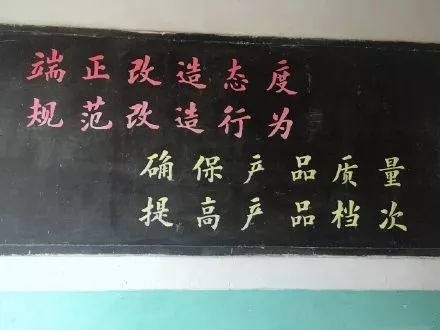 端正改造态度
规范改造行为
确保产品质量
提高产品档次